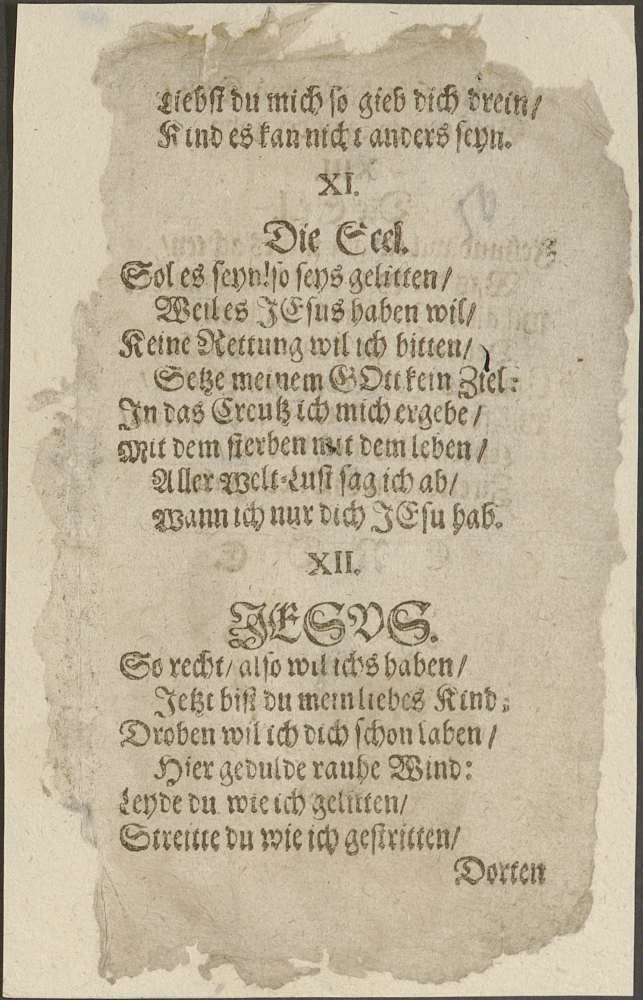 Liebst du mich so gieb dich drein/
Kind es kan nicht anders seyn.
XI.
Die Seel.
Sol es seyn! so seys gelitten/
Weil es JEsus haben wil/
Keine Rettung wil ich bitten/
Setze meinem GOtt kein Ziel:
In das Creutz ich mich ergebe/
Mit dem sterben mit dem leben/
Aller Welt-Lust sag ich ab/
Wann ich nur dich JEsu hab.
XII.
JESVS.
So recht/ also wil ichs haben/
Jetzt bist du mein liebes Kind;
Droben wil ich dich schon laben/
Hier gedulde rauhe Wind:
Leyde du wie ich gelitten/
Streitte du wie ich gestritten/
Dorten